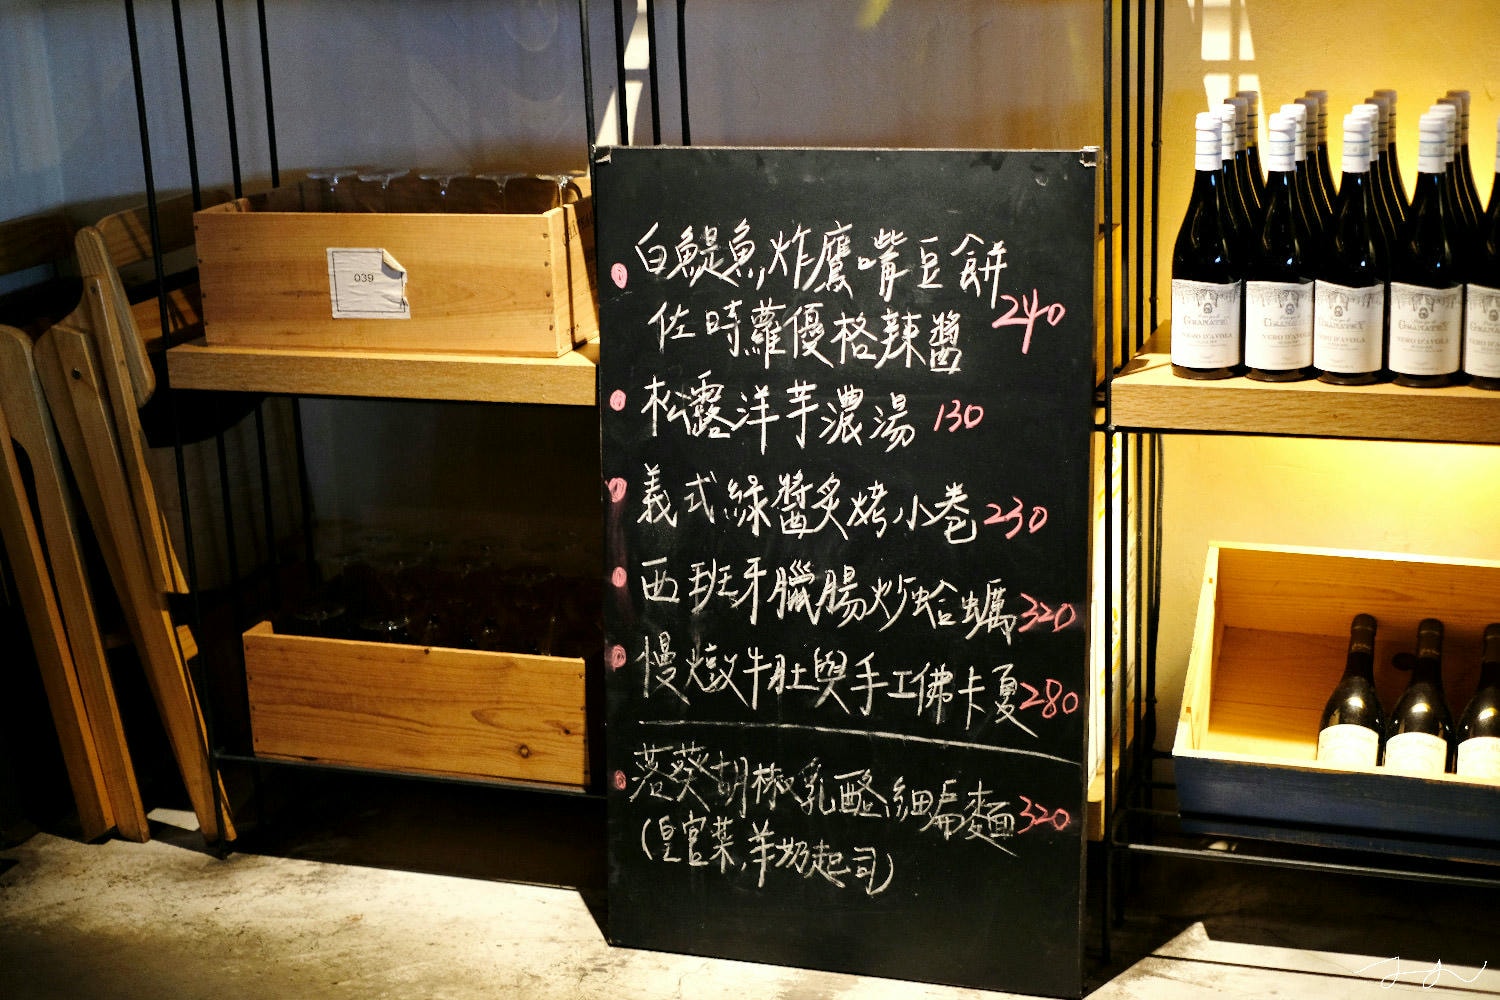 039
白鯷魚炸鷹嘴豆餅
佐時蘿優格辣醬 240
松露洋芋濃湯 130
義式綠醬炙烤小卷 230
西班牙臘腸炒蛤蠣 320
慢燉牛肚與手工佛卡夏 280
落葵胡椒乳酪細扁麵 320
(皇宮菜,羊奶起司)
GRANATEY
NERO D'AVOLA